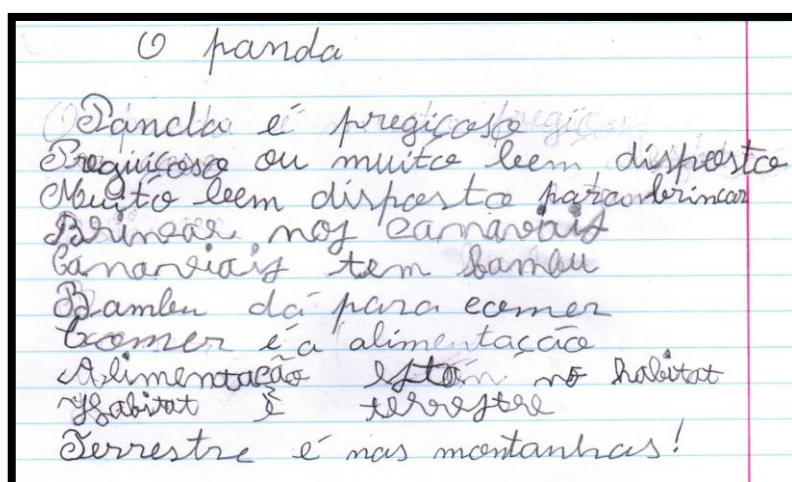 O panda
Panda é pregiçoso
Preguiçoso ou muito bem disposto
Muito bem disposto para brincar
Brincar nos canaviais
Canaviais tem bambu
Bambu dá para comer
Comer é a alimentação
Alimentação está no habitat
Habitat é terrestre
Terrestre é nas montanhas!